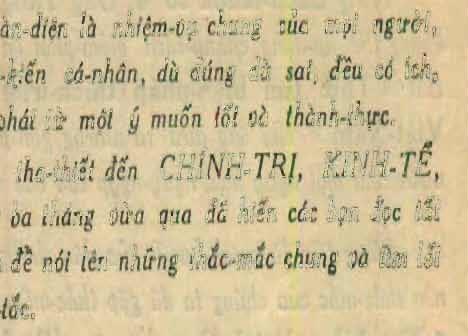 àn-diện là nhiệm-vụ chung của mọi người,
-kiến cá-nhân, dù đúng dù sai, đều có ích,
phát từ một ý muốn tốt và thành-thực.
tha-thiết đến CHÍNH-TRỊ, KINH-TẾ,
ba tháng vừa qua đã hiến các bạn đọc tất
đề nói lên những thắc-mắc chung và tìm lối
-tắc.